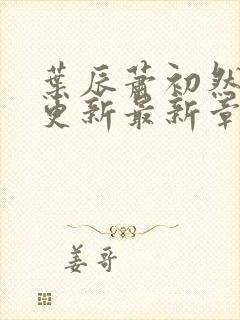 葉辰蕭初然
更新最新章
姜哥